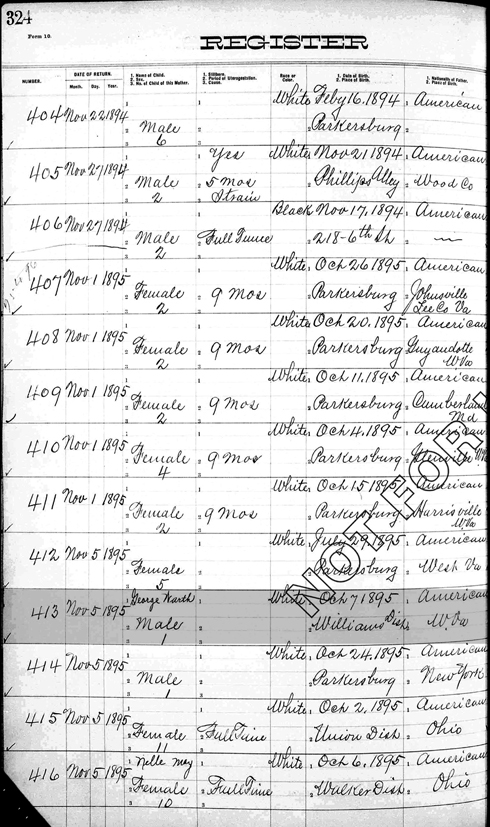 324
Form 10.
REGISTER
NUMBER. DATE OF RETURN. 1. Name of Child. 2. Sex. 3. No. of Child of this Mother. 1. Stillborn. 2. Period of Uterogestation. 3. Cause. Race or Color. 1. Date of Birth. 2. Place of Birth. 1. Nationality of Father. 2. Place of Birth.
Month. Day. Year.
404 Nov 22 1894 White Feby 16, 1894 American
Male Parkersburg
6
405 Nov 27 1894 Yes White Nov 21 1894 American
Male 5 mos Phillips Alley Wood Co
2 Strain
406 Nov 27 1894 Black Nov 17, 1894 American
Male Full Time 218-6th St
2
407 Nov 1 1895 White Oct 26 1895 American
Female 9 Mos Parkersburg Johnsville
2 Lee Co Va
408 Nov 1 1895 White Oct 20, 1895 American
Female 9 Mos Parkersburg Guyandotte
2 W Va
409 Nov 1 1895 White Oct 11, 1895 American
Female 9 Mos Parkersburg Cumberland
2 Md
410 Nov 1 1895 White Oct 4, 1895 American
Female 9 Mos Parkersburg
4
411 Nov 1 1895 White Oct 15 1895 American
Female 9 Mos Parkersburg Harrisville
2 W Va
412 Nov 5 1895 White July 29, 1895 American
Female Parkersburg West Va
5
413 Nov 5 1895 George Warth White Oct 7 1895 American
Male Williams Dist W Va
1
414 Nov 5 1895 White Oct 24, 1895 American
Male Parkersburg New York
1
415 Nov 5 1895 White Oct 2, 1895 American
Female Full Time Union Dist Ohio
11
416 Nov 5 1895 Nelle May White Oct 6, 1895 American
Female Full Time Walker Dist Ohio
10
NOT FOR